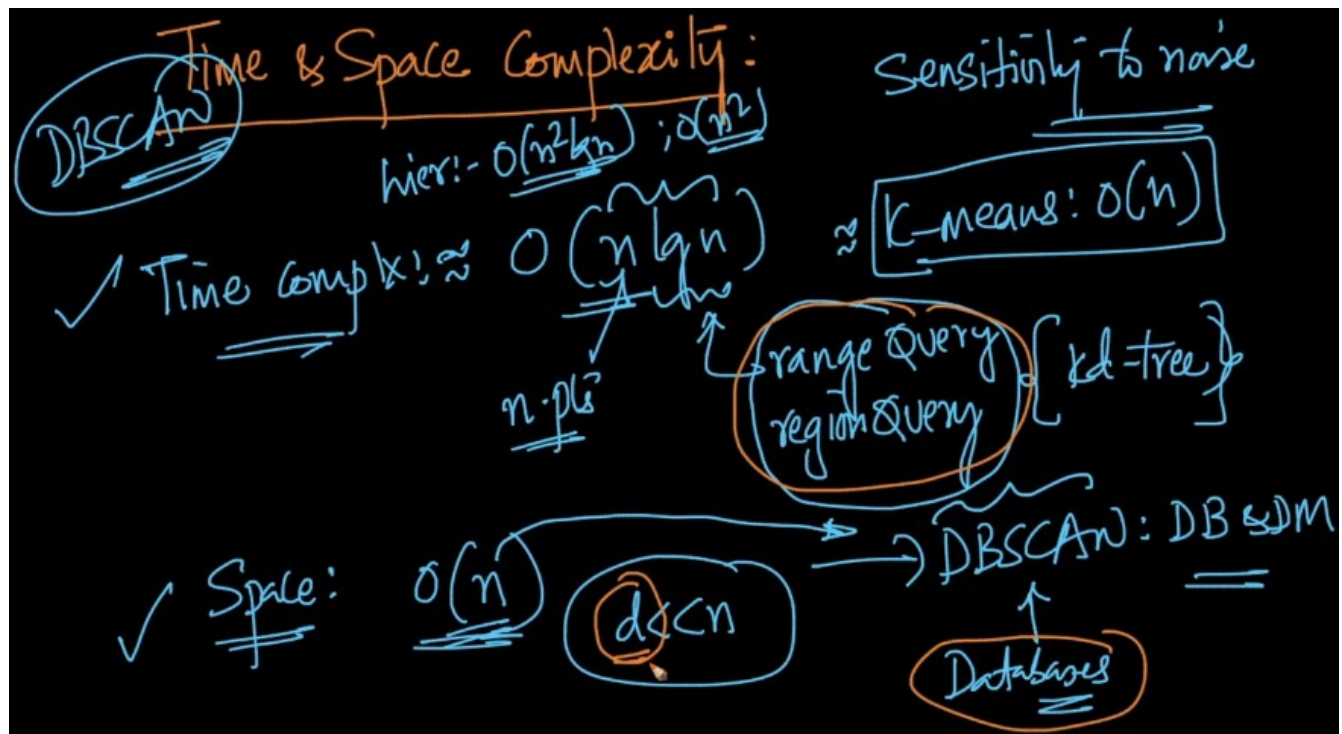 Time & Space Complexity:
DBSCAN
Sensitivity to noise
hier:- O(n² lg n) ; O(n²)
✓ Time complx: ≈ O(n lg n) ≈ K-means: O(n)
n.pts
range Query
region Query
{kd-tree}
✓ Space: O(n)
d<<n
→ DBSCAN: DB & DM
Databases